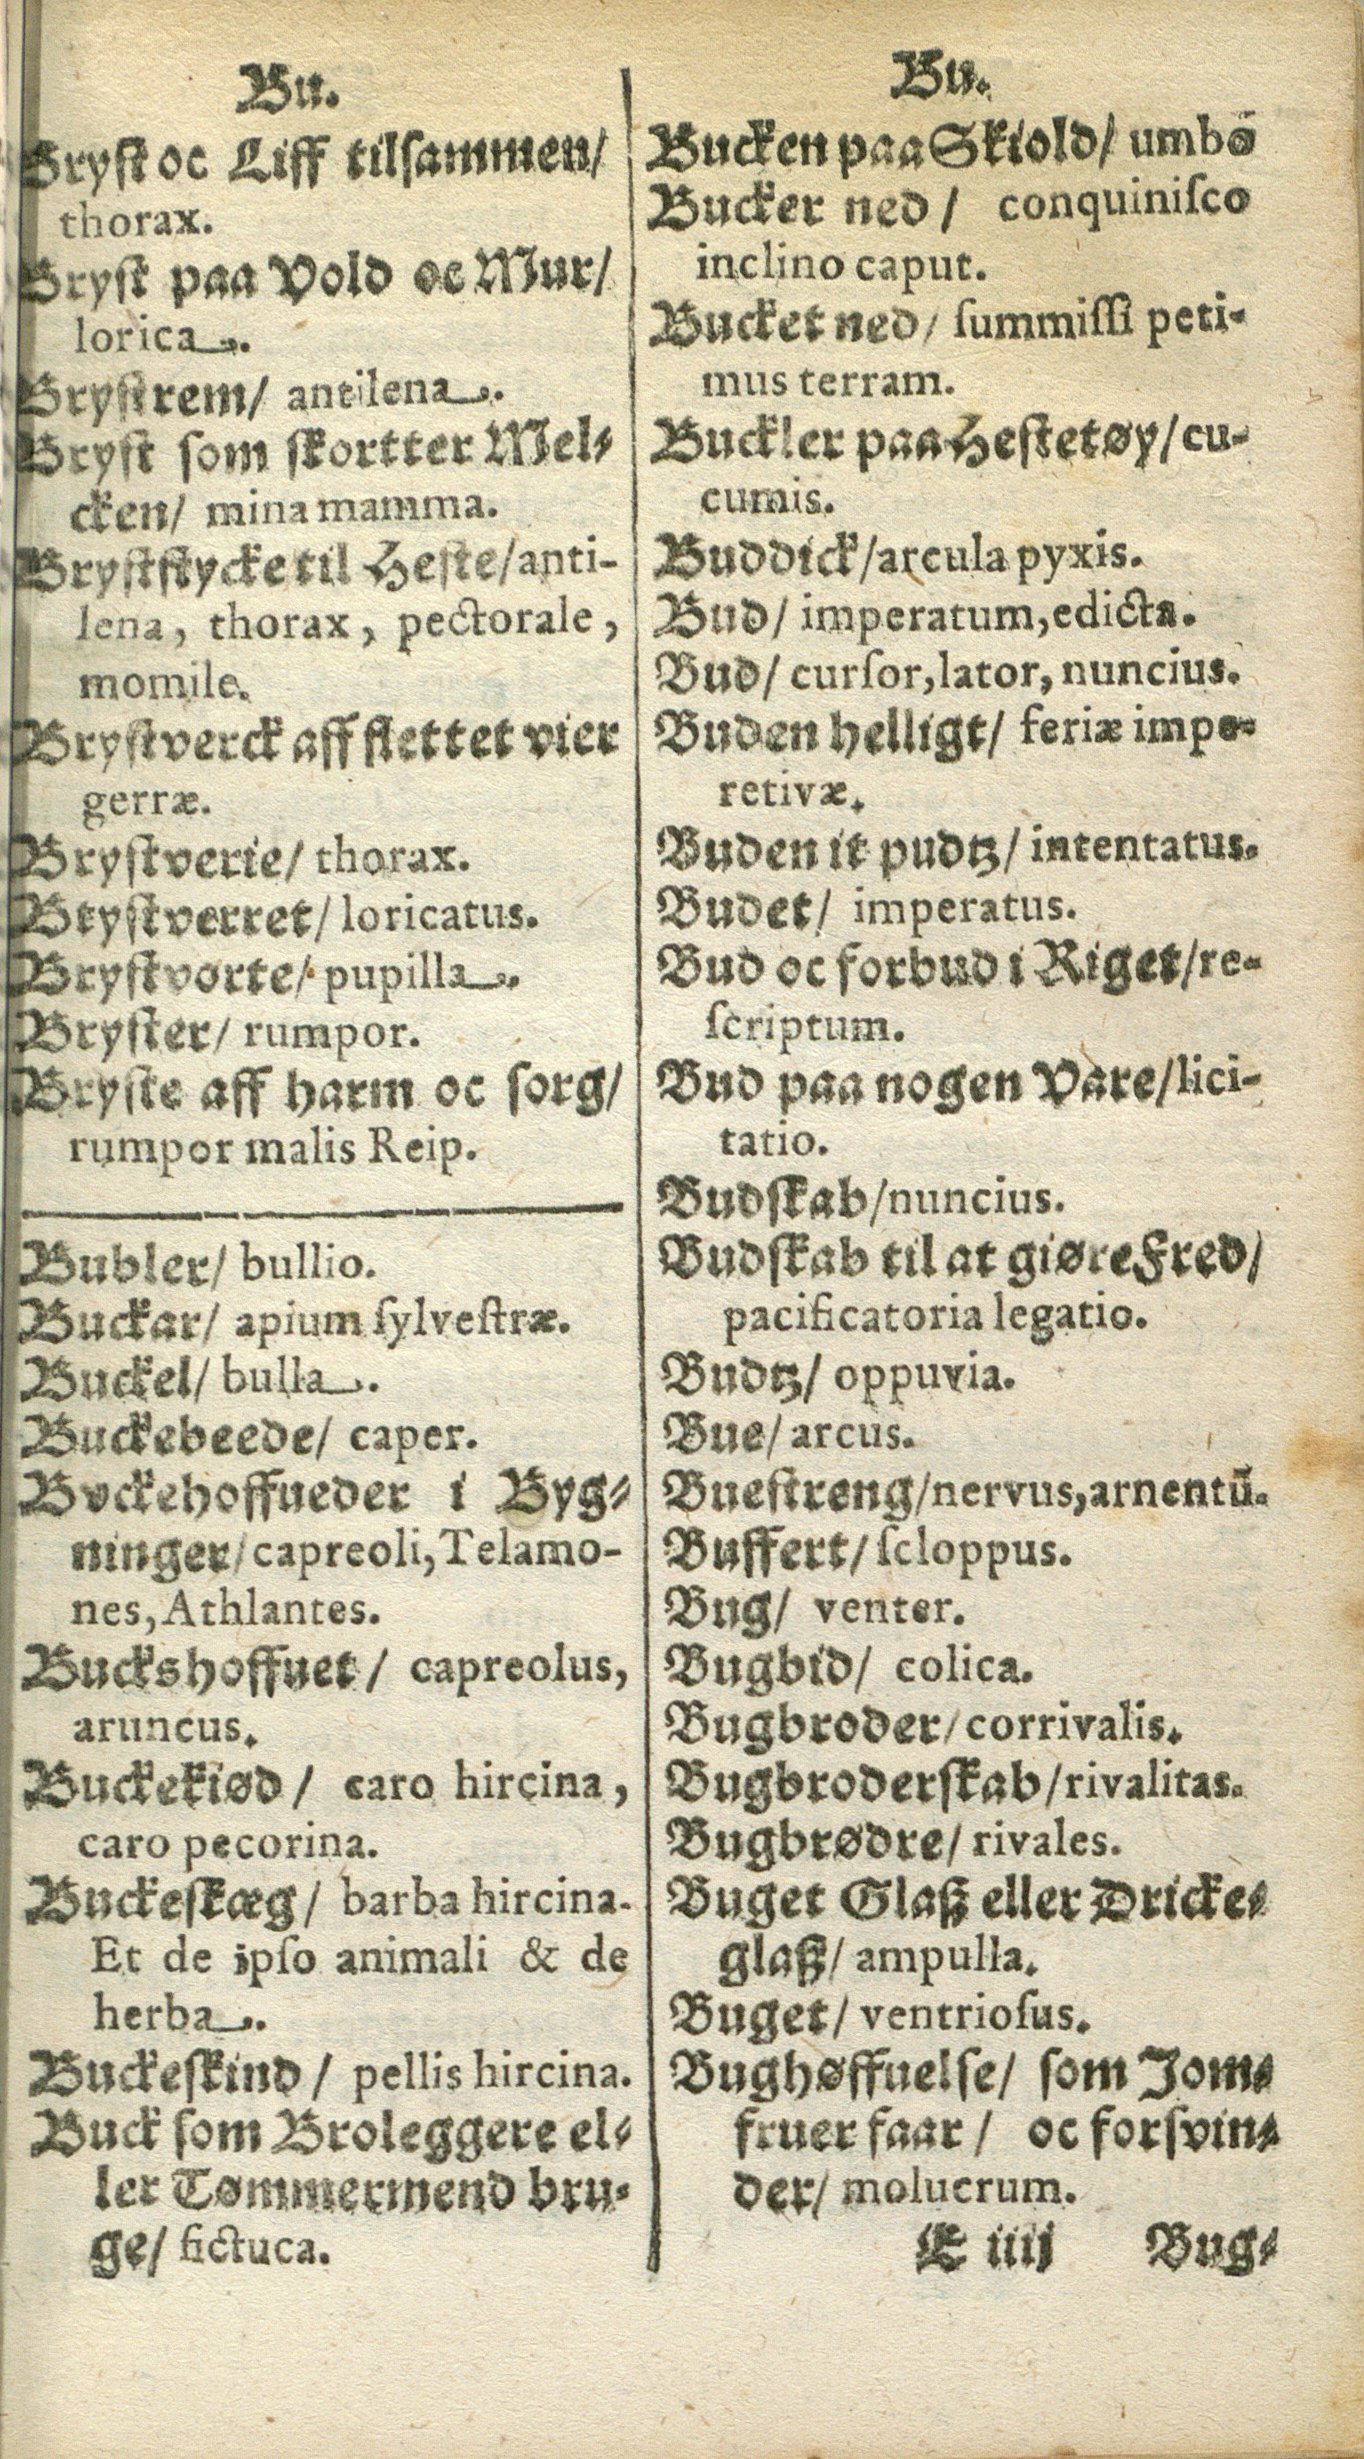 Bu.
Bryst oc Liff tilsammen/
thorax.
Bryst paa Vold oc Mur/
lorica.
Brystrem/ antilena.
Bryst som skortter Mel-
cken/ mina mamma.
Bryststycke til Heste/anti-
lena, thorax, pectorale,
momile.
Brystverck aff flettet vier
gerræ.
Brystverie/ thorax.
Btystverret/ loricatus.
Brystvorte/ pupilla.
Bryster/ rumpor.
Bryste aff harm oc sorg/
rumpor malis Reip.
Bubler/ bullio.
Buckar/ apium ſylveſtræ.
Buckel/ bulla.
Buckebeede/ caper.
Bvckehoffueder i Byg-
ninger/capreoli, Telamo-
nes, Athlantes.
Buckshoffuet/ capreolus,
aruncus.
Buckekiød/ caro hircina,
caro pecorina.
Buckeskæg/ barba hircina.
Et de ipſo animali & de
herba.
Buckeskind/ pellis hircina.
Buck som Broleggere el-
ler Tømmermend bru-
ge/ fictuca.
Bu.
Bucken paa Skiold/ umbō
Bucker ned/ conquiniſco
inclino caput.
Bucket ned/ ſummiſſi peti-
mus terram.
Buckler paa Hestetøy/ cu-
cumis.
Buddick/arcula pyxis.
Bud/ imperatum, edicta.
Bud/ curſor, lator, nuncius.
Buden helligt/ feriæ impe-
retivæ.
Buden it pudtz/ intentatus.
Budet/ imperatus.
Bud oc forbud i Riget/re-
ſcriptum.
Bud paa nogen Vare/lici-
tatio.
Budskab/nuncius.
Budskab til at giøre Fred/
pacificatoria legatio.
Budtz/ oppuvia.
Bue/ arcus.
Buestreng/nervus, arnentū.
Buffert/ ſcloppus.
Bug/ venter.
Bugbid/ colica.
Bugbroder/corrivalis.
Bugbroderskab/rivalitas.
Bugbrødre/ rivales.
Buget Glaß eller Dricke-
glaß/ ampulla.
Buget/ ventrioſus.
Bughøffuelse/ som Jom-
fruer faar/ oc forsvin-
der/ molucrum.
E iiij Bug-